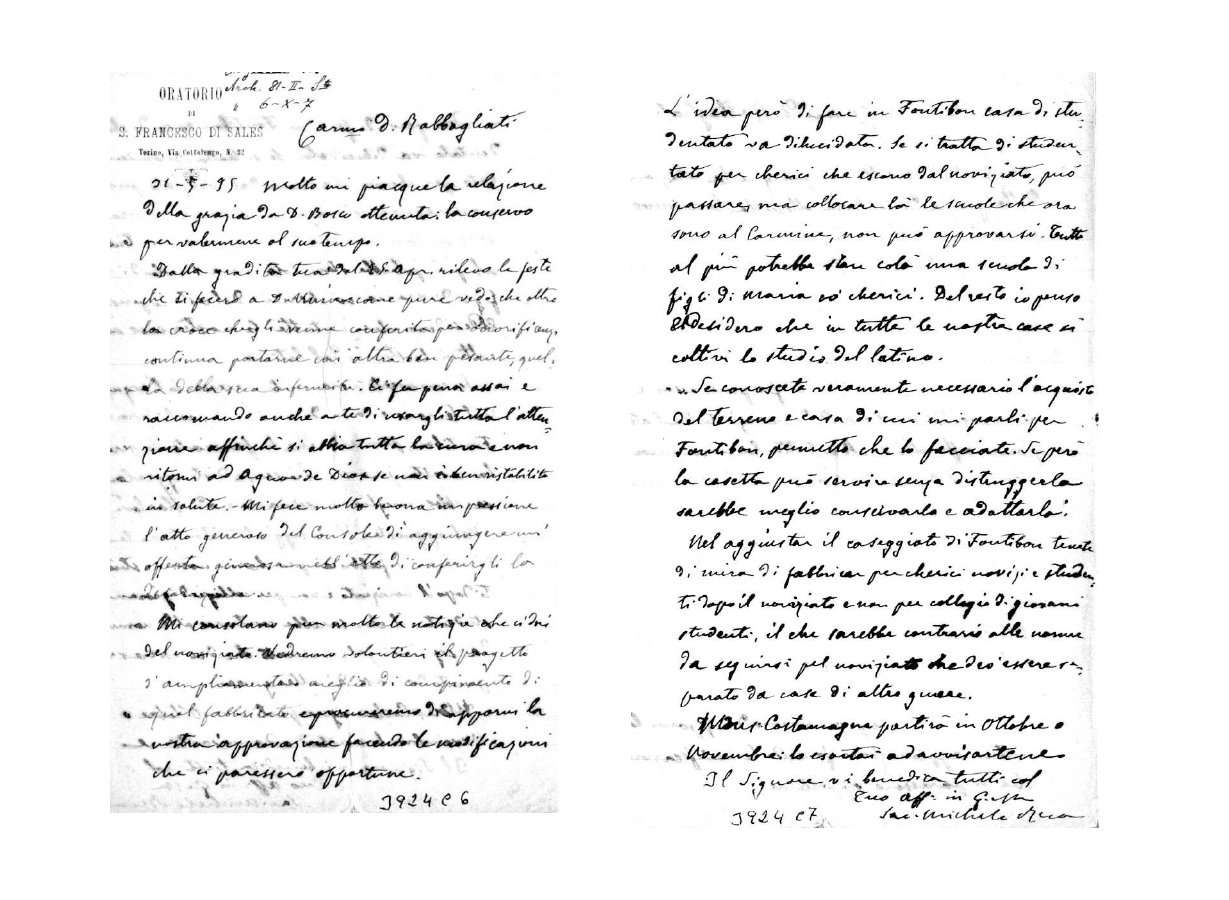 Arch. 81-II- St
" 6-X-7
ORATORIO
DI
S. FRANCESCO DI SALES
Torino, Via Cottolengo, N. 32
Carmo D. Rabbagliati
31-5-95 Molto mi piacque la relazione
della grazia da D. Bosco ottenuta: la conservo
per valermene al suo tempo.
Dalla gradita tua del apr. rilevo le feste
che si fecero a D. come pure vedo che oltre
la croce che gli venne conferita per
continua portarne un'altra ben pesante, quel,
la della sua infermità. Ci fa pena assai e
raccomando anche a te di usargli tutta l'atten=
zione affinchè si abbia tutta la cura e non
ritorni ad Agua de Dios se non è ben ristabilito
in salute. - Mi fece molto buona impressione
l'atto generoso del Console di aggiungere un'
offerta generosa nell'atto di conferirgli la
Mi consolano pur molto le notizie che ci dai
del noviziato. Vedremo volentieri il progetto
d'ampliamento o meglio di compimento di
quel fabbricato e procureremo di apporvi la
nostra approvazione facendo le modificazioni
che ci paressero opportune.
3924 C 6
L'idea però di fare in Fontibon casa di stu
dentato va dilucidata. Se si tratta di studen=
tato per chierici che escono dal noviziato, può
passare, ma collocare là le scuole che ora
sono al Carmine, non può approvarsi. Tutto
al più potrebbe stare colà una scuola di
figli di Maria o chierici. Del resto io penso
e desidero che in tutte le nostre case si
coltivi lo studio del latino.
Se conoscete veramente necessario l'acquisto
del terreno e casa di cui mi parli per
Fontibon, permetto che lo facciate. Se però
la casetta può servire senza distruggerla
sarebbe meglio conservarla e adattarla.
Nel aggiustar il caseggiato di Fontibon tenete
di mira di fabbricar per chierici novizi e studen,
ti dopo il noviziato e non per collegio di giovani
studenti, il che sarebbe contrario alle norme
da seguirsi pel noviziato che deve essere se=
parato da case di altro genere.
Mons. Costamagna partirà in Ottobre o
Novembre: lo esortai ad avvisartene
Il Signore vi benedica tutti col
Tuo aff. in G. e M.
Sac. Michele Rua
3924 C7